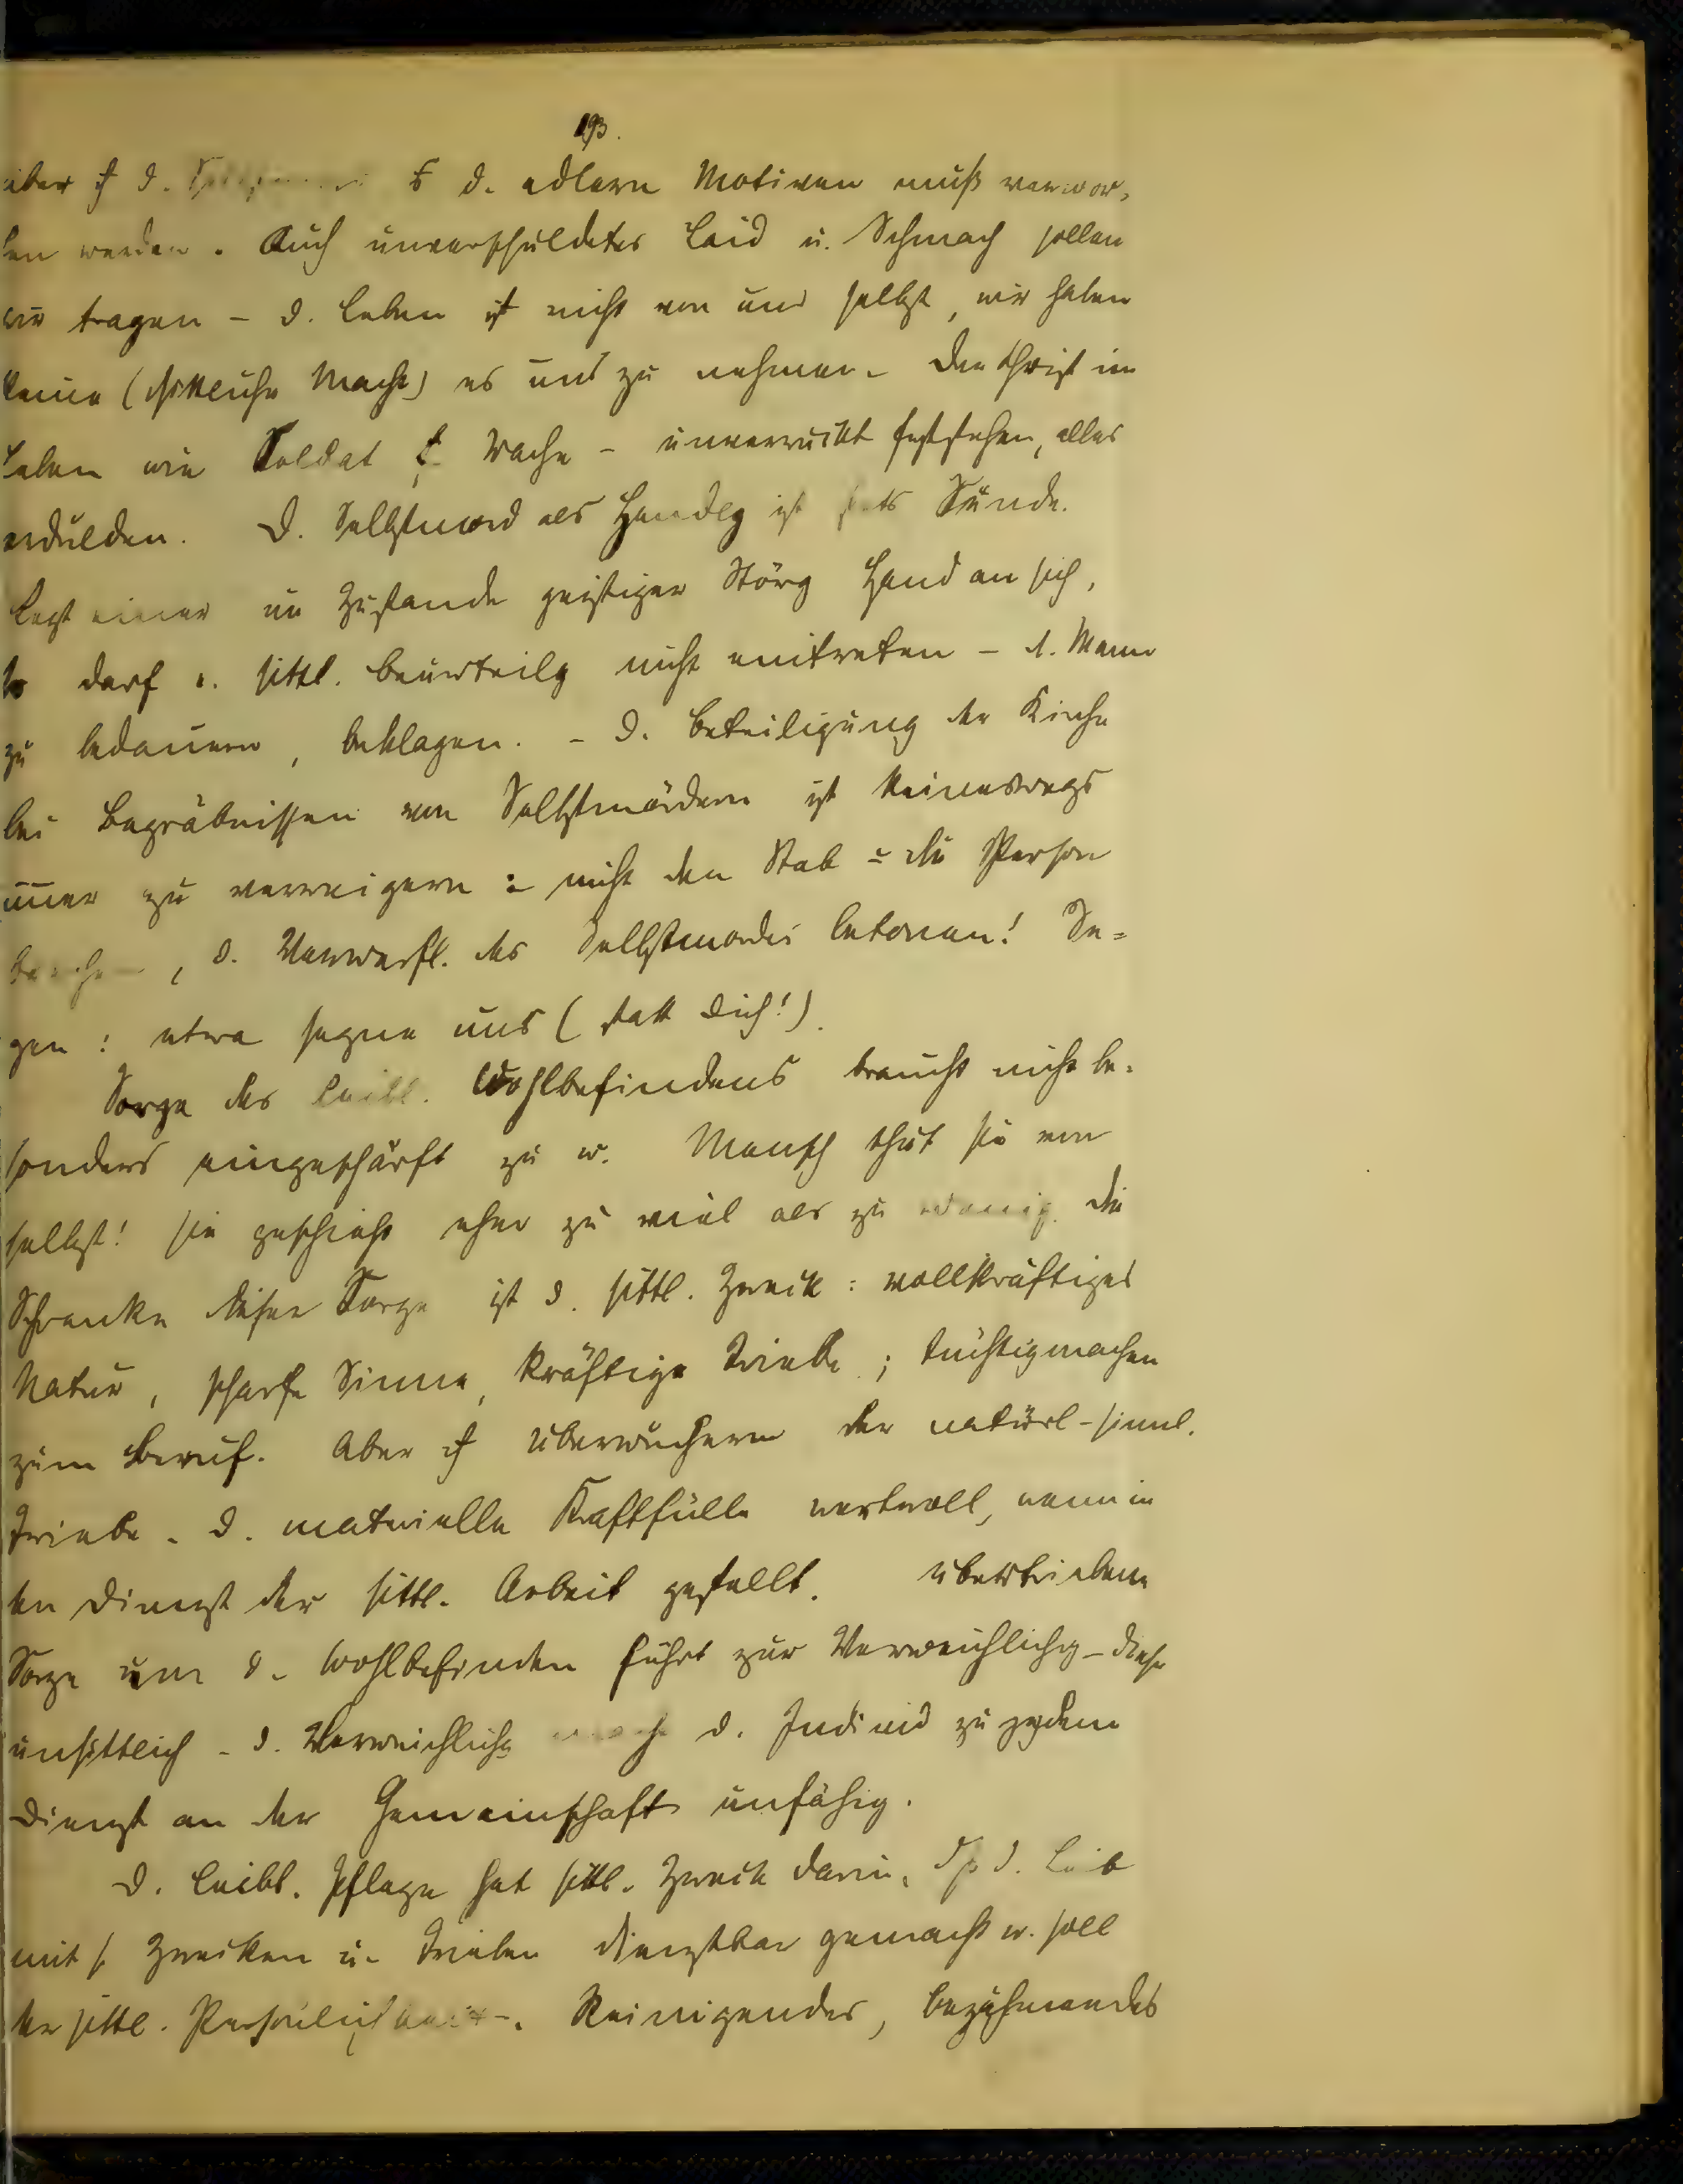 193.
aber d. d. edlern Motiven muß verwor-
fen werden. Auch unverschuldetes Leid u. Schmach sollen
wir tragen – d. Leben ist nicht von uns selbst, wir haben
keine (sittliche Macht) es uns zu nehmen. Der Christ im
Leben wie Soldat Wache – unverrückt feststehen, alles
erdulden. D. Selbstmord als Handlg ist stets Sünde.
Legt einer im Zustande geistiger Störg Hand an sich,
so darf e. sittl. Beurteilg nicht eintreten – d. Mann
zu bedauern, beklagen. – D. Beteiligung der Kirche
bei Begräbnissen von Selbstmördern ist keineswegs
immer zu verweigern: nicht den Stab die Person
brechen, d. Verwerfl. des Selbstmordes betonen! Se=
gen: etwa segne uns (statt dich!).
Sorge des leibl. Wohlbefindens braucht nicht be-
sonders eingeschärft zu w. Mensch thut sie von
selbst! sie geschieht eher zu viel als zu wenig. Die
Schranke dieser Sorge ist d. sittl. Zweck: vollkräftiges
Natur, scharfe Sinne, kräftige Triebe; tüchtigmachen
zum Beruf. Aber überwuchern der natürl-sinnl.
Triebe. D. materielle Kraftfülle wertvoll, wenn in
den Dienst der sittl. Arbeit gestellt. Übertriebene
Sorge um d. Wohlbefinden führt zur Verweichlichg – diese
unsittlich – d. Verweichlichg macht d. Individ zu jedem
Dienst an der Gemeinschaft unfähig.
D. leibl. Pflege hat sittl. Zweck darin, d. Leib
mit s. Zwecken u. Trieben dienstbar gemacht w. soll
der sittl. Persönlichkeit –. Reinigendes, bezähmendes